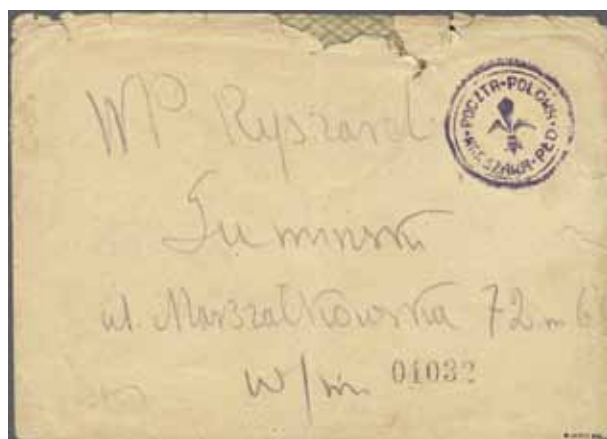 POCZTA·POLOWA·
WARSZAWA·PŁD·
WP Ryszard
ul. Marszałkowska 72 m 6
w/m. 01032